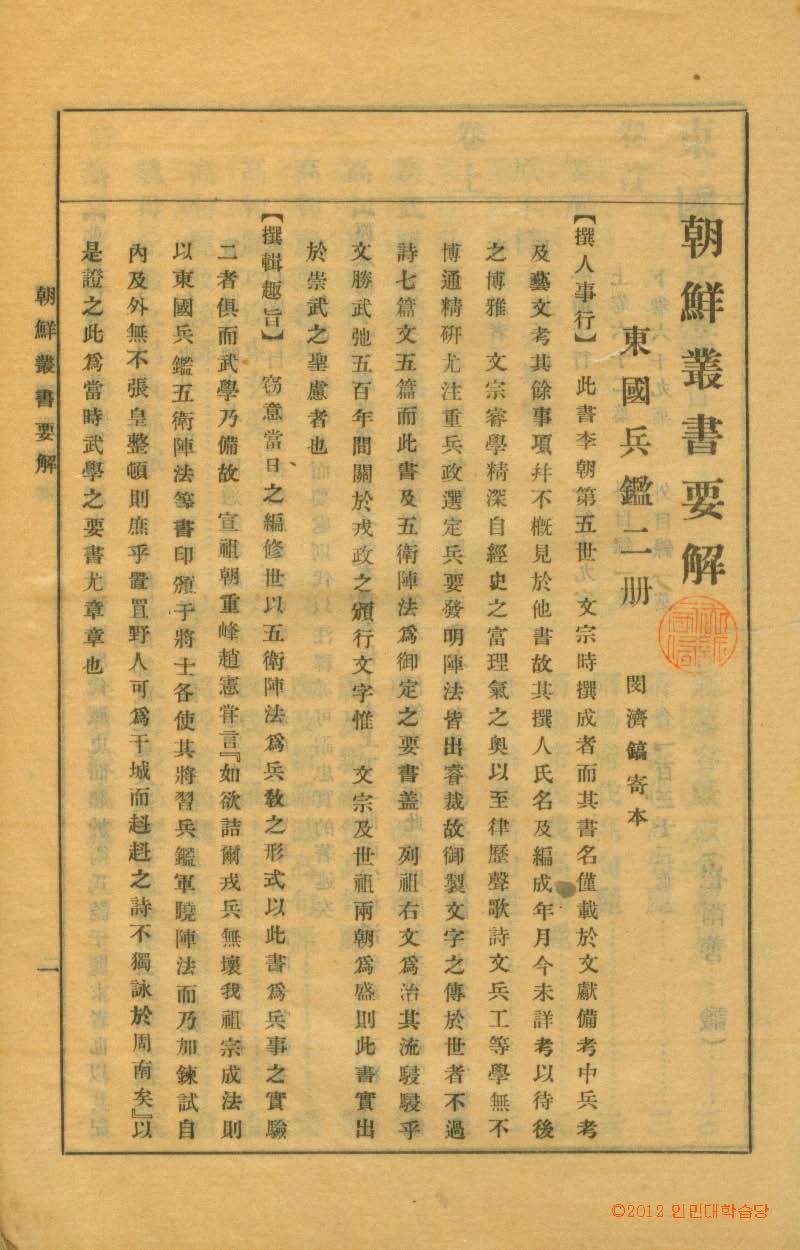 朝鮮叢書要解
東國兵鑑二册　閔濟鎬寄本
【撰人事行】此書李朝第五世　文宗時撰成者而其書名僅載於文獻備考中兵考
及藝文考其餘事項幷不槪見於他書故其撰人氏名及編成年月今未詳考以待後
之博雅　文宗睿學精深自經史之富理氣之奧以至律歷聲歌詩文兵工等學無不
博通精硏尤注重兵政選定兵要發明陣法皆出睿裁故御製文字之傳於世者不過
詩七篇文五篇而此書及五衛陣法爲御定之要書盖　列祖右文爲治其流駸駸乎
文勝武弛五百年間關於戎政之頒行文字惟　文宗及世祖兩朝爲盛則此書實出
於崇武之聖慮者也
【撰輯趣旨】　窃意當日、之編修世以五衛陣法爲兵敎之形式以此書爲兵事之實驗
二者俱而武學乃備故　宣祖朝重峰趙憲甞言『如欲詰爾戎兵無壞我祖宗成法則
以東國兵鑑五衛陣法等書印頒于將士各使其將習兵鑑軍曉陣法而乃加鍊試自
內及外無不張皇整頓則庶乎置罝野人可爲干城而赳赳之詩不獨詠於周南矣』以
是證之此爲當時武學之要書尤章章也
朝鮮叢書要解
一
©2012 인민대학습당